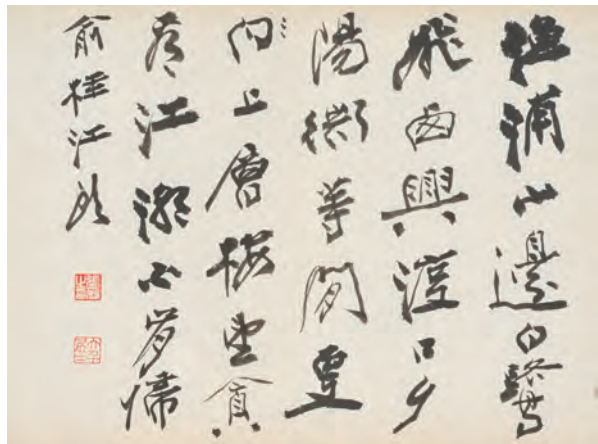 漁浦山邊白鷺
飛西興渡口夕
陽微等閒更
向上層樓望貪
看江潮不肯歸
俞桂江頭